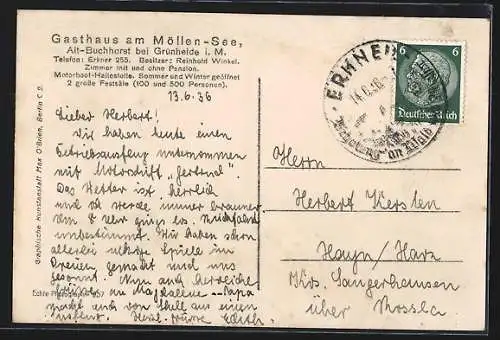 Gasthaus am Möllen-See,
Alt-Buchhorst bei Grünheide i. M.
Telefon: Erkner 255. Besitzer: Reinhold Winkel.
Zimmer mit und ohne Pension.
Motorboot-Haltestelle. Sommer und Winter geöffnet
2 große Festsäle (100 und 500 Personen)
13.6.36
Lieber Herbert!
Wir haben heute einen
Betriebsausflug unternommen
mit Motorschiff
Das Wetter ist herrlich
und ich werde immer brauner
8 Uhr ging es. Rückfahrt
unbestimmt. Wir haben schon
allerlei ulkige Spiele im
Freien gemacht und uns
gesonnt. Nun auch herzliche
Grüße an
macht auch von Shell aus einen
Ausflug. Herzl. Grüße Edith.
Graphische Kunstanstalt Max O'Brien, Berlin C 2.
Echte Photographie
ERKNER
14.6.36
6 6
Deutsches Reich
Herrn
Herbert Kersten
Hayn/Harz
Krs. Sangerhausen
über Rossla